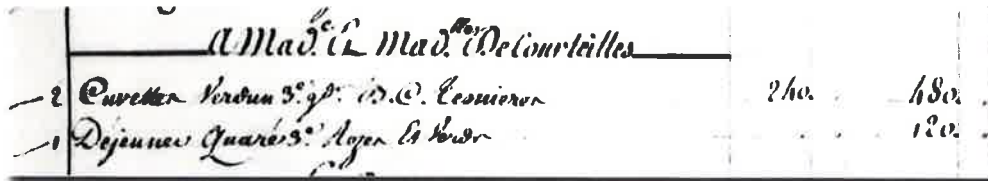 A Mad.e & Mad.elles De Courteilles
2 Cuvettes Verdun 3.e gr. B. C. Tesnieres 240. 480.
1 Dejeuner Quaré 3.e Rozes Et Verds 120.